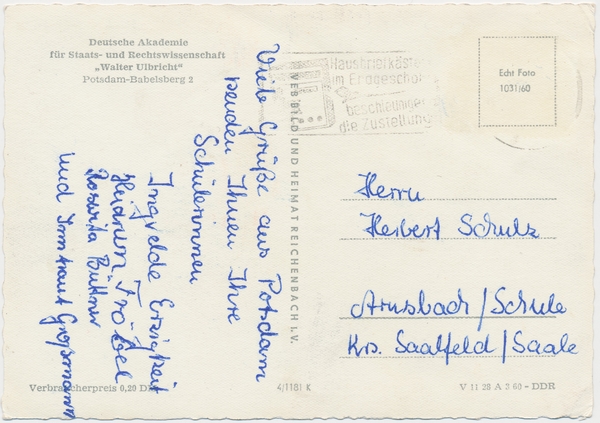 Deutsche Akademie
für Staats- und Rechtswissenschaft
„Walter Ulbricht"
Potsdam-Babelsberg 2
Viele Grüße aus Potsdam
senden Ihnen Ihre
Schülerinnen
Ingvelde Erzigkeit
Heidrun Fröbel
Roswita Büttner
und Irmtraut Großmann
Verbraucherpreis 0,20
VEB BILD UND HEIMAT REICHENBACH I. V.
4/1181 K
Hausbriefkästen
im Erdgeschoß
beschleunigen
die Zustellung
Echt Foto
1031/60
Herrn
Herbert Schulz
Arnsbach/Schule
Krs. Saalfeld/Saale
V 11 28 A 3 60 - DDR